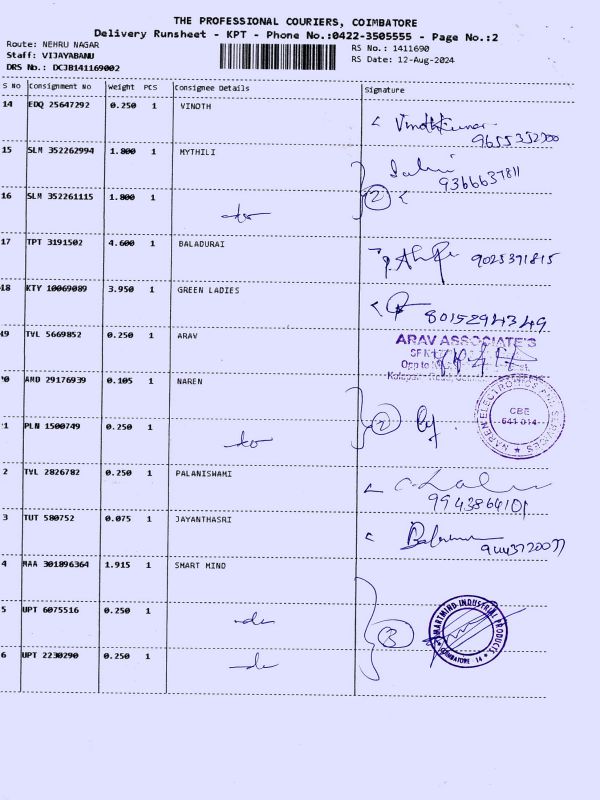 THE PROFESSIONAL COURIERS, COIMBATORE
Delivery Runsheet - KPT - Phone No.:0422-3505555 - Page No.:2
Route: NEHRU NAGAR
Staff: VIJAYABANU
DRS No.: DCJB141169002
RS No.: 1411690
RS Date: 12-Aug-2024
S No Consignment No Weight PCS Consignee Details Signature
14 EDQ 25647292 0.250 1 VINOTH
Vinothkumar
9655352300
15 SLM 352262994 1.800 1 MYTHILI
9366637811
16 SLM 352261115 1.800 1
do
2
17 TPT 3191502 4.600 1 BALADURAI
9025391815
18 KTY 10069089 3.950 1 GREEN LADIES
8015294349
19 TVL 5669852 0.250 1 ARAV
ARAV ASSOCIATE'S
SF
Opp to
0 AMD 29176939 0.105 1 NAREN
NAREN ELECTRONICS AND SERVICES
CBE
641 014
2
1 PLN 1500749 0.250 1
do
2 TVL 2826782 0.250 1 PALANISWAMI
9943864101
3 TUT 580752 0.075 1 JAYANTHASRI
4 MAA 301896364 1.915 1 SMART MIND
5 UPT 6075516 0.250 1
do
3
SMARTMIND INDUSTRIAL PRODUCTS
COIMBATORE 14
6 UPT 2230290 0.250 1
do